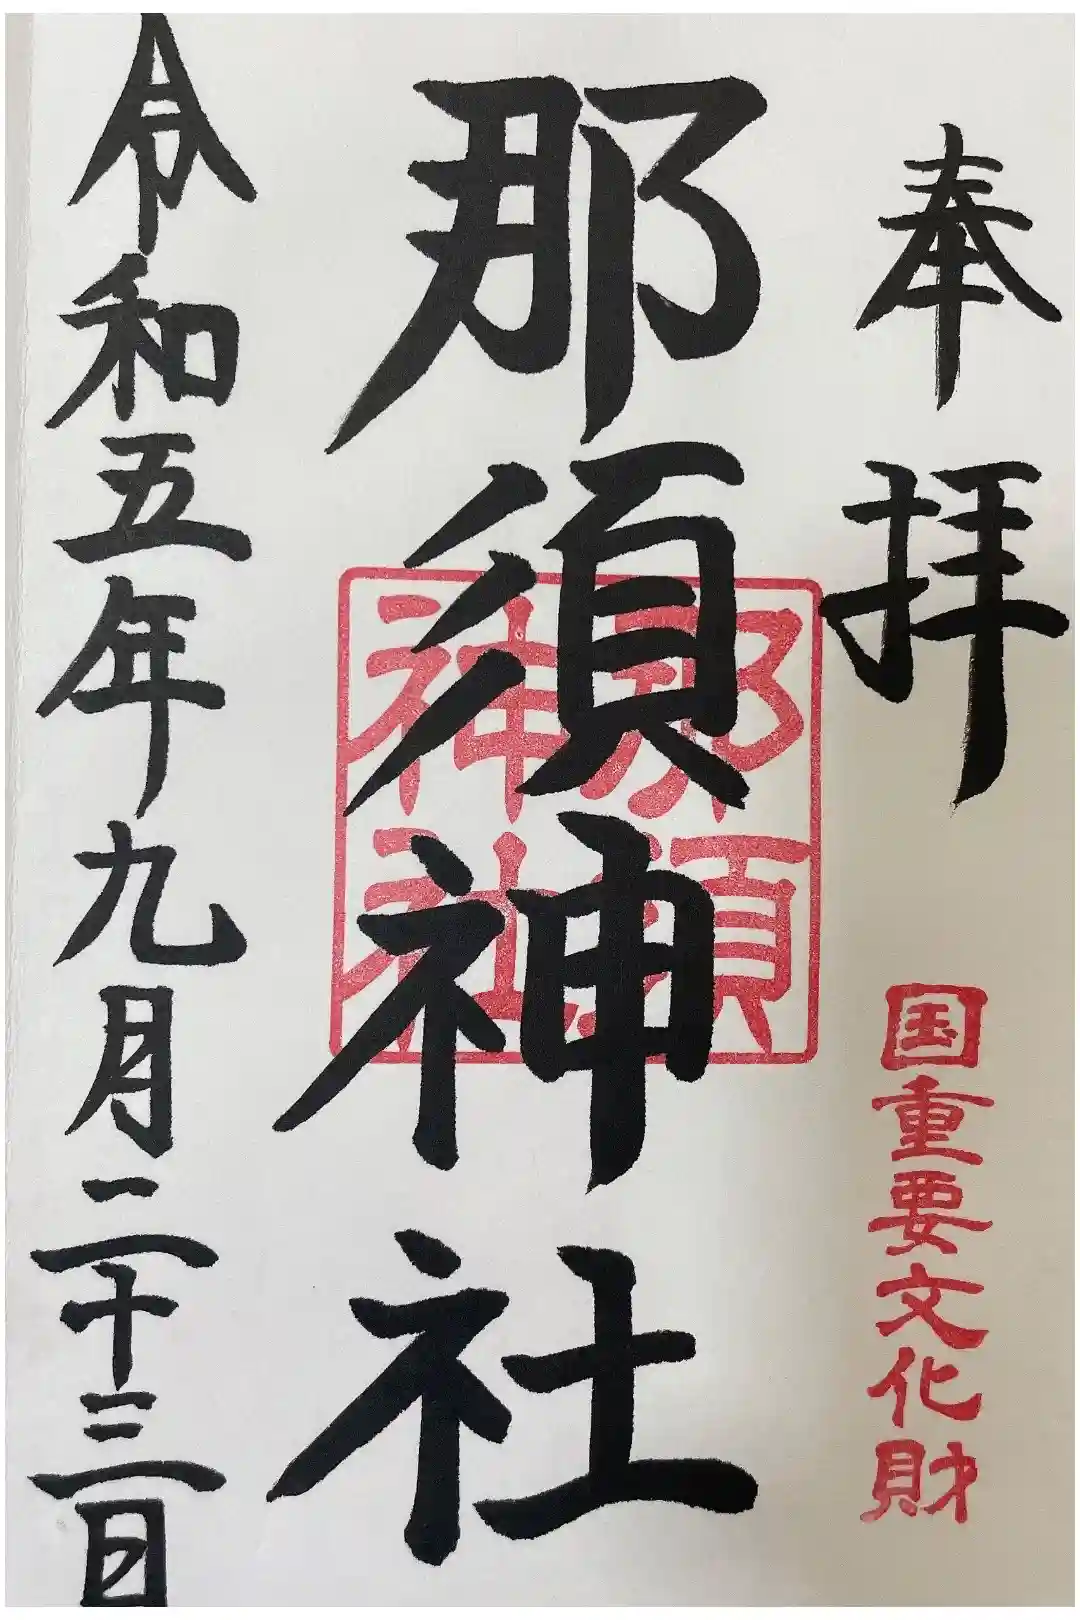 奉拝
国重要文化財
那須神社
那須
神社
令和五年九月二十三日